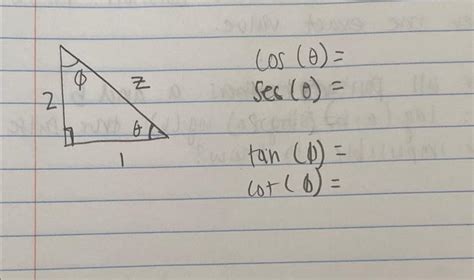 φ
z
2
θ
1
cos (θ) =
ses (θ) =
tan (φ) =
cot (φ) =